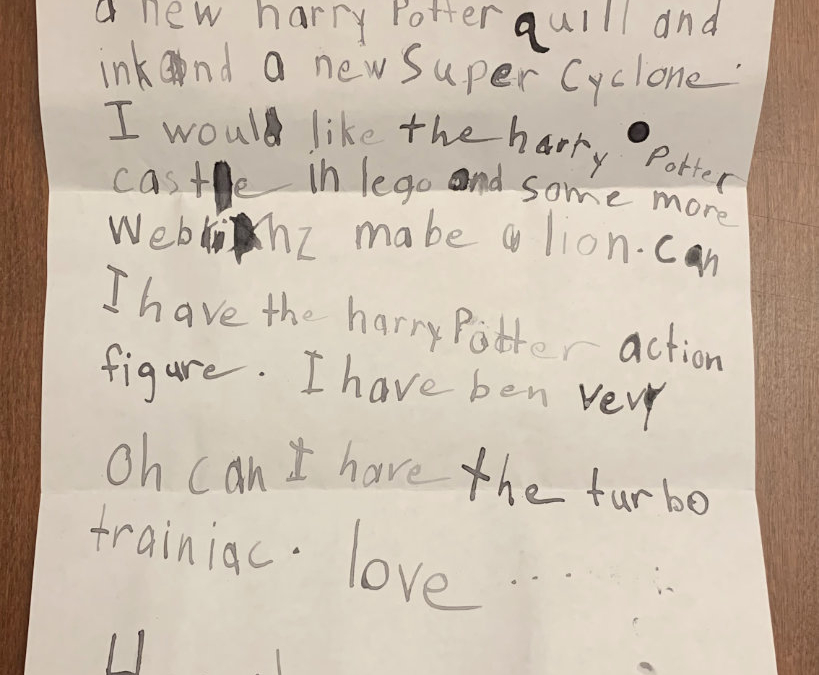 a new harry Potter quill and
ink and a new Super Cyclone.
I would like the harry Potter
castle in lego and some more
Webkinz mabe a lion. can
I have the harry Potter action
figure. I have ben very
Oh can I have the turbo
trainiac. love ....